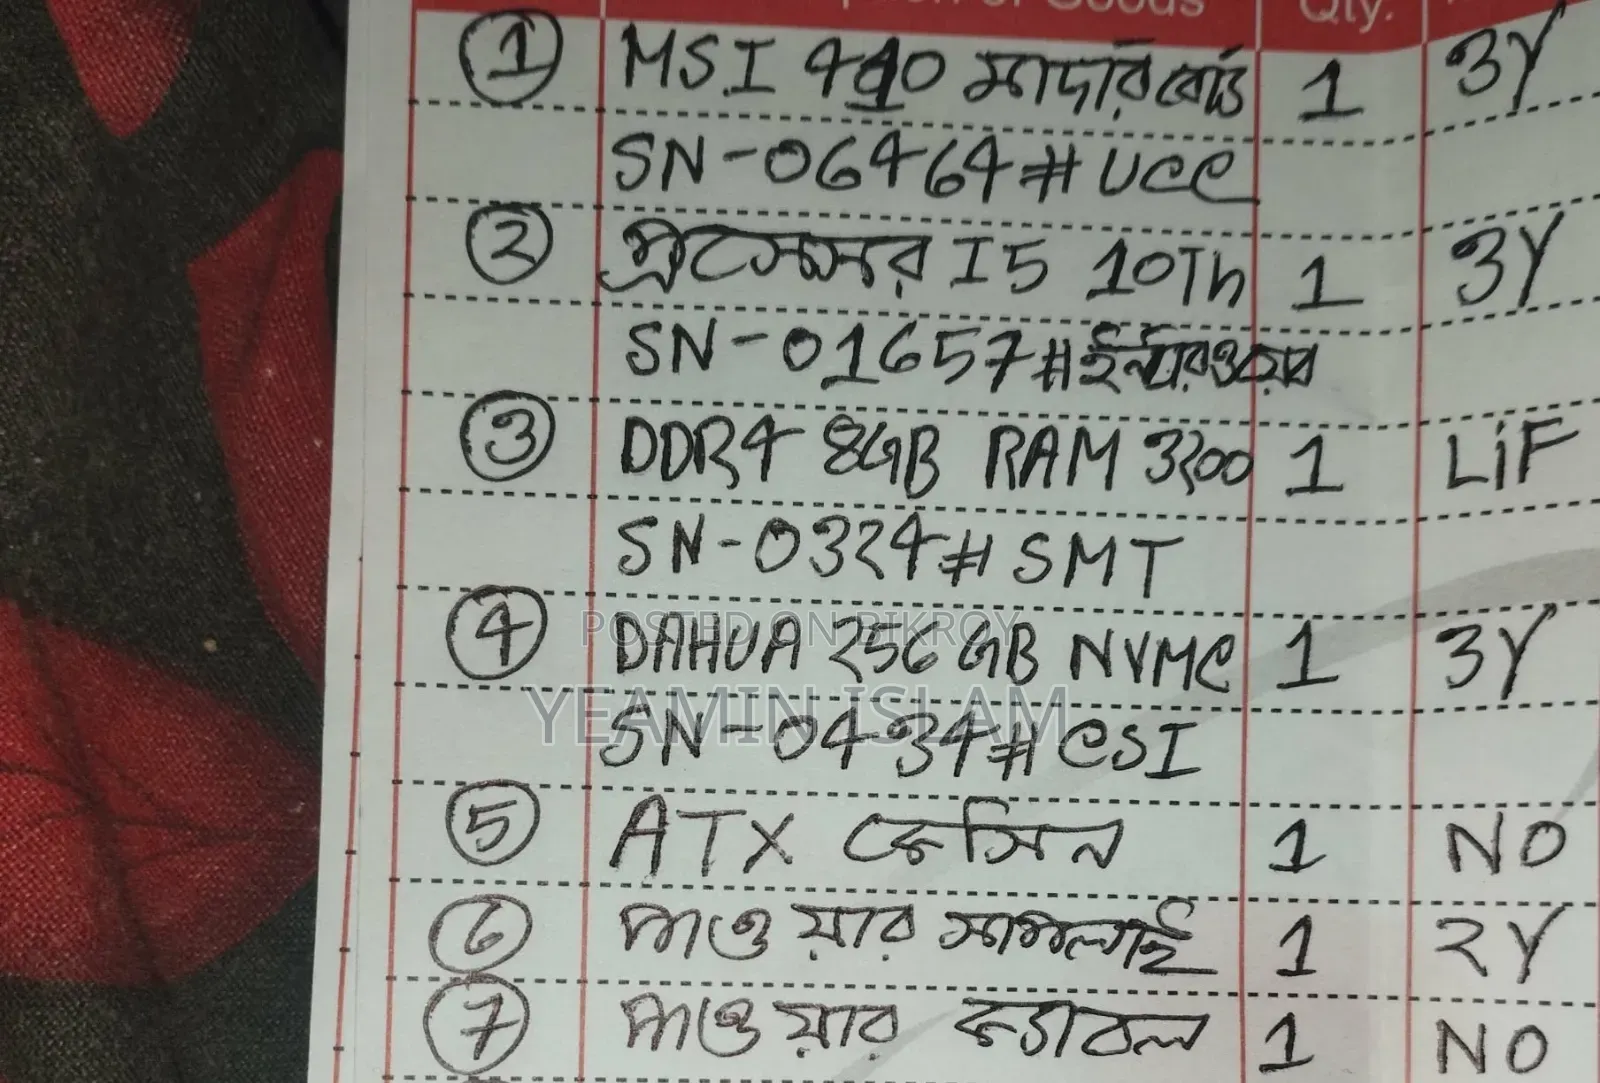 Goods Qty.
1 MSI 410 মাদারবোর্ড 1 3Y
SN-06464#UCC
2 প্রসেসর I5 10Th 1 3Y
SN-01657#
3 DDR4 8GB RAM 3200 1 LiF
SN-0324#SMT
POSTED ON BIKROY
4 DAHUA 256GB NVMe 1 3Y
YEAMIN ISLAM
SN-0434#CSI
5 ATX কেসিন 1 NO
6 পাওয়ার সাপলাই 1 2Y
7 পাওয়ার ক্যাবল 1 NO